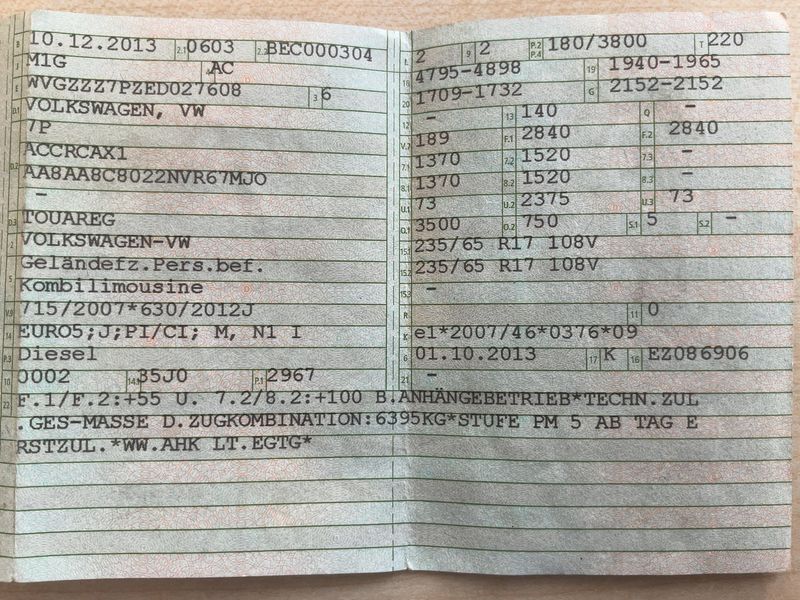 B 10.12.2013 2.1 0603 2.2 BEC000304
J M1G 4 AC
E WVGZZZ7PZED027608 3 6
D.1 VOLKSWAGEN, VW
7P
D.2 ACCRCAX1
AA8AA8C8022NVR67MJO
-
D.3 TOUAREG
2 VOLKSWAGEN-VW
5 Geländefz.Pers.bef.
Kombilimousine
V.9 715/2007*630/2012J
14 EURO5;J;PI/CI; M, N1 I
P.3 Diesel
10 0002 14.1 35J0 P.1 2967
L 2 9 2 P.2 P.4 180/3800 T 220
18 4795-4898 19 1940-1965
20 1709-1732 G 2152-2152
12 - 13 140 Q -
V.7 189 F.1 2840 F.2 2840
7.1 1370 7.2 1520 7.3 -
8.1 1370 8.2 1520 8.3 -
U.1 73 U.2 2375 U.3 73
O.1 3500 O.2 750 S.1 5 S.2 -
15.1 235/65 R17 108V
15.2 235/65 R17 108V
15.3 -
R 11 0
K e1*2007/46*0376*09
6 01.10.2013 17 K 16 EZ086906
21 -
22 F.1/F.2:+55 U. 7.2/8.2:+100 B.ANHÄNGEBETRIEB*TECHN.ZUL
.GES-MASSE D.ZUGKOMBINATION:6395KG*STUFE PM 5 AB TAG E
RSTZUL.*WW.AHK LT.EGTG*